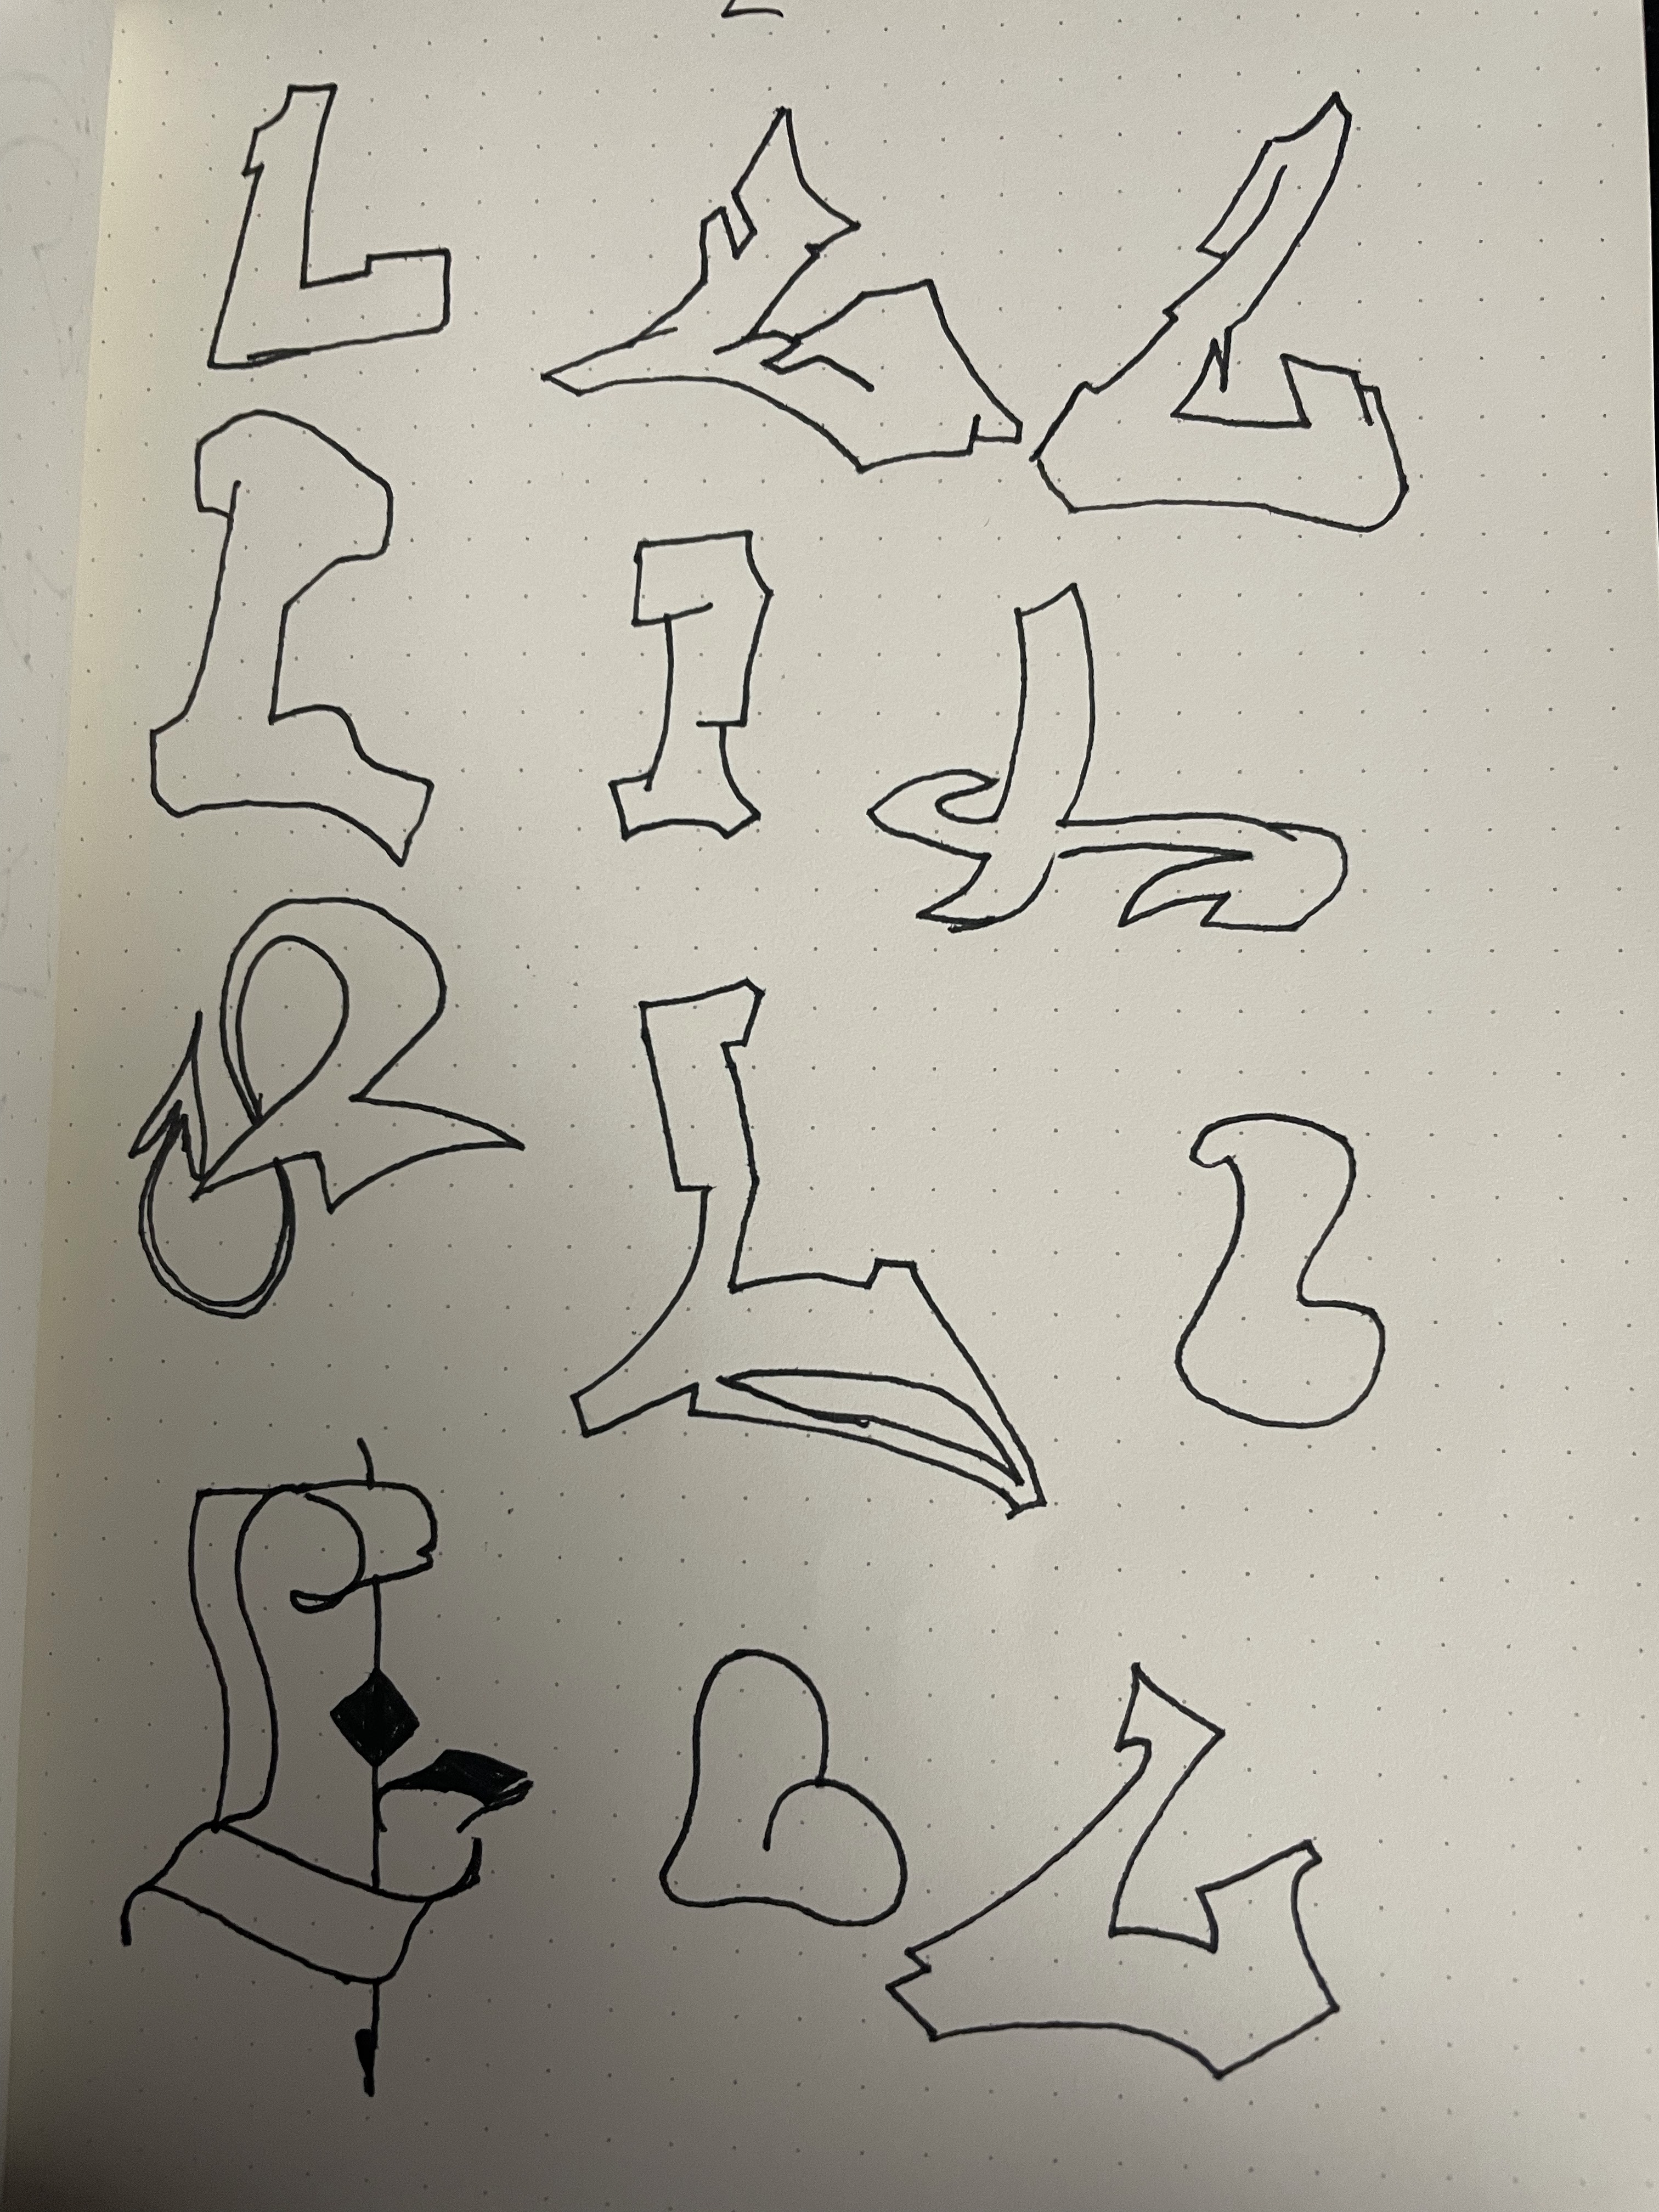 L L L
L I L
L L L
L L L